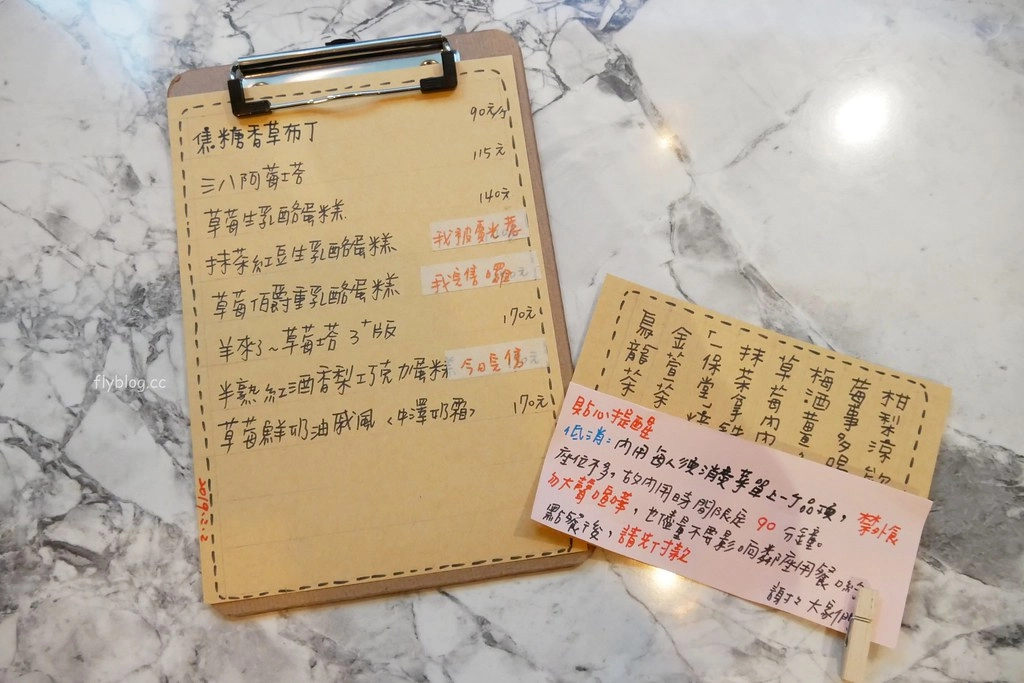 焦糖香草布丁 90元/份
三八阿莓塔 115元
草莓生乳酪蛋糕 140元
抹茶紅豆生乳酪蛋糕 我被看光惹
草莓伯爵重乳酪蛋糕 我完售囉
羊來了~草莓塔 3+版 170元
半熟紅酒香梨巧克力蛋糕 今日完售
草莓鮮奶油戚風<中澤奶霜> 170元
2019.2.2
柑梨涼飲
莓事多喝
梅酒薑
草莓內
抹茶拿鐵
一保堂焙
金萱茶
烏龍茶
貼心提醒
低消:內用每人須消費菜單上一丁品項,禁外食
座位不多,故內用時間限定90分鐘。
勿大聲喧嘩,也儘量不要影响鄰座用餐哟
點餐後,請先付款
謝謝大家們
flyblog.cc